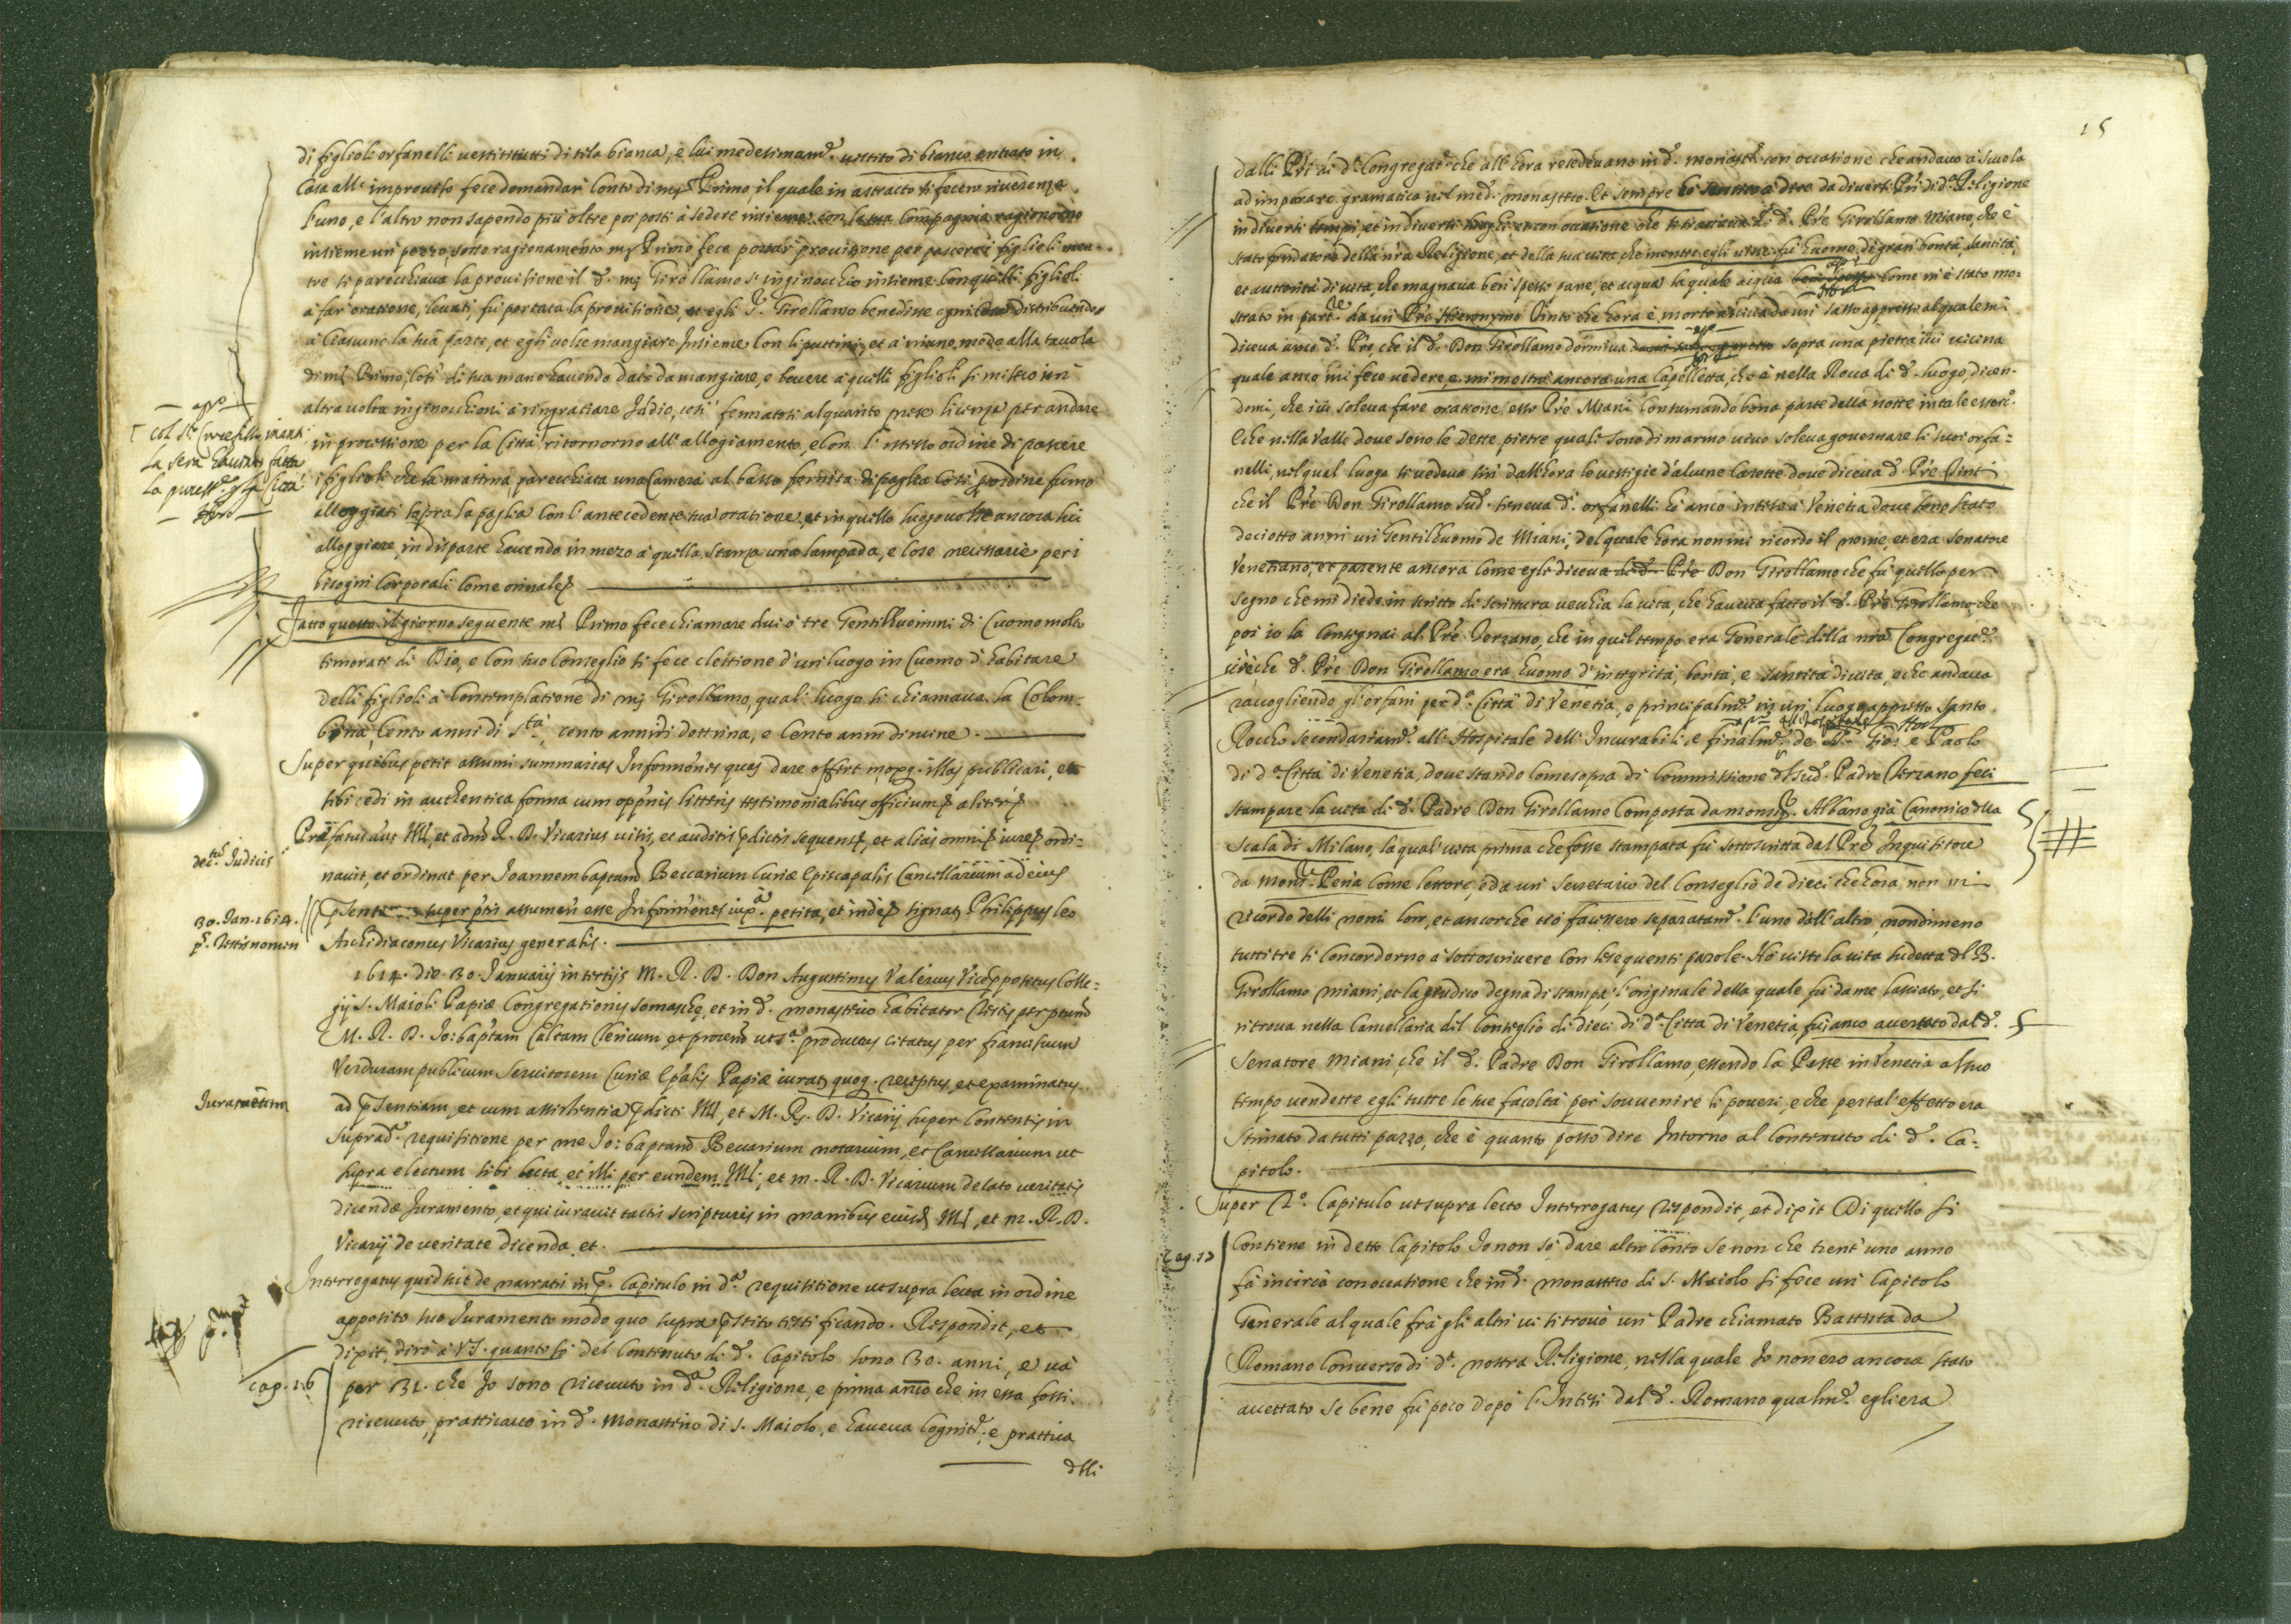 di figlioli orfanelli vestiti tutti di tela bianca, e lui medesimam.te vestito di bianco entrato in
Casa all' improviso fece domandar conto di m. Primo, il quale in astratto si fecero riverenza
l'uno, e l'altro non sapendo più oltre poi posti à sedere insieme con la sua Compagnia ragionorno
insieme un' pezzo, sotto ragionamento m. Primo fece portar provisione per pascere i figlioli men-
tre si parecchiava la provisione il d. m. Girollamo s' inginocchiò insieme con quelli figlioli
à far oratione, levati, fù portata la provisione, et egli S.r Girollamo benedisse ogni cosa distribuendo
à Ciascuno la sua parte, et egli volse mangiare Insieme con li puttini, et à niuno modo alla tavola
di m. Primo, così di sua mano havendo dato da mangiare, e bevere à quelli figlioli si misero un'
altra volta inginocchioni à ringratiare Iddio, così fermatosi alquanto prese licenza per andare
in processione per la Città ritornorno all' allogiamento, e con l' istesso ordine di pascere
i figlioli che la mattina, parecchiata una Camera al basso fornita di paglia così per ordine furno
alloggiati sopra la paglia con l' antecedente sua oratione, et in quello luogo volse ancora lui
alloggiare in disparte havendo in mezo à quella stanza una lampada, e cose necessarie per i
bisogni Corporali come orinale
Fatto questo il giorno seguente m. Primo fece chiamare dui ò tre Gentilhuomini di Cuomo molto
timorati di Dio, e con suo Conseglio si fece elettione d' un' luogo in Cuomo d' habitare
delli figlioli à Contemplatione di m. Girollamo, qual luogo si chiamava la Colom-
bina, Cento anni di S.tà, cento anni di dottrina, e Cento anni di nome
Super quibus petit assumi summarias Informones quas dare offert moxq. illas publicari, et
sibi cedi in authentica forma cum opp.nis litteris testimonialibus officium aliter
Præfatus aut Ill., et adm. R. D. Vicarius visis, et auditis pdictis sequens, et alias omni iure ordi-
navit, et ordinat per Joannem baptam Beccarium Curiæ Episcopalis Cancellarium ad eius
psentam super ptis assumen esse Informones sup.a petita, et inde signat Philippus leo
Archidiaconus Vicarius generalis.
1614. die 30. Januarij in tertijs M. R. D. Don Augustinus Valerius Vicepositus Colle-
gij S. Maioli Papiæ Congregationis Somaschę, et in d. monasterio habitator testis per ptum
M. R. D. Jo: baptam Caltam Clericum et procem ut s.a productus citatus per franciscum
Verduram publicum Servitorem Curiæ Epalis Papiæ iurat quoq. receptus, et examinatus
ad psentiam, et cum assistentia pdicti Ill., et M. R. D. Vicarij super Contentis in
suprad. requisitione per me Jo: baptam Becarium notarium, et Cancellarium ut
supra electum sibi lecta et illi per eundem Ill., et m. R. D. Vicarium delato veritatis
dicendæ Juramento, et qui iuravit tactis scripturis in manibus eiusd. Ill., et m. R. D.
Vicarij de veritate dicenda et.
Interrogatus quid sit de narratis in p.o Capitulo in d.a requisitione ut supra lecta in ordine
apposito suo Juramento modo quo supra pstito testificando. Respondit, et
dixit, dirò à V.S. quanto sò del Contenuto di d. Capitolo sono 30. anni, e và
per 31. che Io sono ricevuto in d.a Religione, e prima anco che in essa fossi
ricevuto, pratticavo in d. Monasterio di S. Maiolo, e haveva Cognit.e, e prattica
delli
apre
Col S.to Crocefisso inanti
La sera havendo fatta
La process.e p la Città
Ston
dec.tus Judicis
30. Jan. 1614.
p.s testis nomen
Juramentum
cap. 16
15
dalli Pri di d.a Congregat.e che all' hora resedevano in d. monast.o con occatione che andavo à Scuola
ad imparare gramatica nel med. monasterio. Et sempre hò sentito à dire da diversi Pri di d.a Religione
in diversi tempi, et in diversi luoghi, et con occatione che si trattava di d. Pre Girollamo Miano, che è
stato fondatore della nra Religione, et della sua vita, che mentre egli visse fù huomo di gran bontà, santità,
et austerità di vita, che magnava ben spesso pane, et acqua la quale acqua ben spesso come mi è stato mo-
strato in part.re da un' Pre Hieronymo Pinto che hora è morto usciva da un' sasso appresso al quale mi
diceva anco d. Pre, che il d. Don Girollamo dormiva sopra una pietra ivi vicina
quale anco mi fece vedere, e mi mostrò ancora una Capelletta, che è nella Rocca di d. luogo, dicen-
domi, che ivi soleva fare oratione esso Pre Miani Consumando bona parte della notte in tale eserc.o
E che nella Valle dove sono le dette pietre quali sono di marmo vivo soleva governare li suoi orfa-
nelli, nel qual luogo si vedeva sin' dall' hora le vestigie d' alcune Casette dove diceva d. Pre Pint
che il Pre Don Girollamo sud. teneva d. orfanelli hò anco inteso à Venetia dove sono stato
deciotto anni un Gentilhuomo de Miani, del quale hora non mi ricordo il nome, et era Senatore
Venetiano, et parente ancora come egli diceva di d. Pre Don Girollamo che fù quello per
segno che mi diede in scritto di scrittura vecchia la vita, che haveva fatto il d. Pre Girollamo, che
poi io la Consignai al Pre Terzano, che in quel tempo era Generale della nra Congregat.e
cioè che d. Pre Don Girollamo era huomo d' integrità, bontà, e santità di vita, e che andava
raccogliendo gl' orfani per d.a Città di Venetia, e principalm.te in un' luogo appresso Santo
all' hospitale
Rocho secondariam.te all' Hospitale dell' Incurabili, e finalm.te de S.ti Gio: e Paolo
di d.a Città di Venetia, dove stando come sopra di Commissione del sud. Padre Terzano feci
stampare la vita di d. Padre Don Girollamo Composta da monsig.r Albano già Canonico della
Scala di Milano, la qual' vita prima che fosse stampata fù sottoscritta dal Pre Inquisitore
da Mons.r Pena come lettore, e da un' Secretario del Conseglio de dieci che hora non mi
ricordo delli nomi loro, et ancorche ciò facessero separatam.te l' uno dell' altro, nondimeno
tutti tre si Concordorno à sottoscrivere con le sequenti parole. Hò visto la vita sudetta del B.
Girollamo Miani, et la giudico degna di stampa, l' originale della quale fù da me lasciato, et si
ritrova nella Cancellaria del Conseglio di dieci di d.a Città di Venetia, fui anco avertato dal d.
Senatore Miani, che il d. Padre Don Girollamo, essendo la Peste in Venetia al suo
tempo vendette egli tutte le sue facoltà per souvenire li poveri, e che per tal' effetto era
stimato da tutti pazzo, che è quanto posso dire Intorno al Contenuto di d. Ca-
pitolo.
Super 2.o Capitulo ut supra lecto Interrogatus respondit, et dixit Di quello si
Contiene in detto Capitolo Io non sò dare altro Conto se non che trent' uno anno
fà incirca con occatione che in d. monasterio di S. Maiolo si fece un' Capitolo
Generale al quale frà gli altri vi si trovò un' Padre chiamato Battista da
Romano Converso di d.a nostra Religione, nella quale Io non ero ancora stato
accettato se bene fù poco dopò l' Intesi dal d. Romano qualm.te egli era
cap. 17